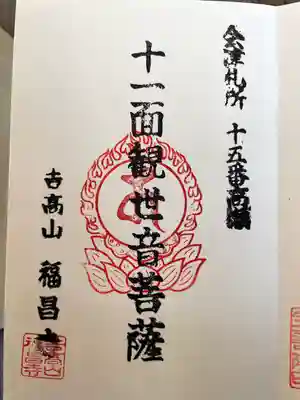 会津札所 十五番
十一面観世音菩薩
吉高山 福昌寺